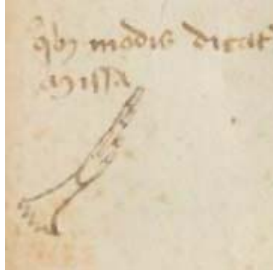 qb₃ modis dicat᷑
missa